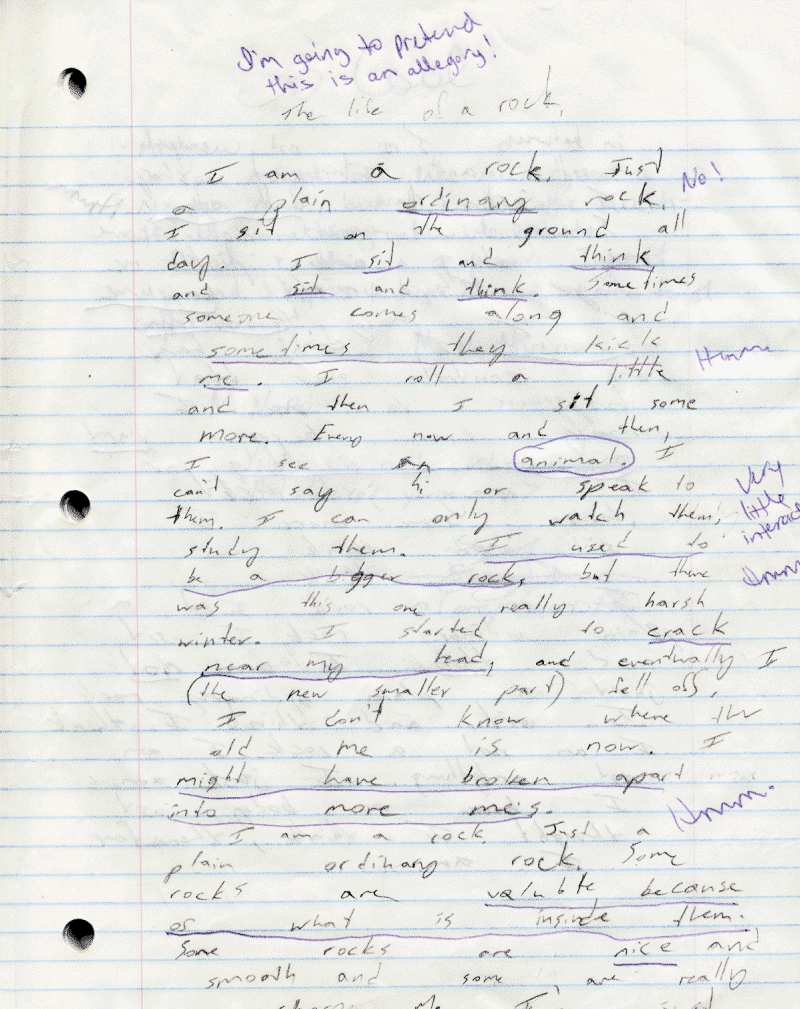 I'm going to pretend
this is an allegory!
The life of a rock.
I am a rock. Just
a plain ordinary rock. No!
I sit on the ground all
day. I sit and think
and sit and think. Sometimes
someone comes along and
sometimes they kick Hmmm
me. I roll a little
and then I sit some
more. Every now and then,
I see an animal. I
can't say hi or speak to Very
them. I can only watch them, little
study them. I used to interact
be a bigger rock, but there Hmmm
was this one really harsh
winter. I started to crack
near my head, and eventually I
(the new smaller part) fell off.
I don't know where the
old me is now. I
might have broken apart
into more me's. Hmmm.
I am a rock. Just a
plain ordinary rock. Some
rocks are valuble because
of what is inside them.
Some rocks are nice and
smooth and some, are really